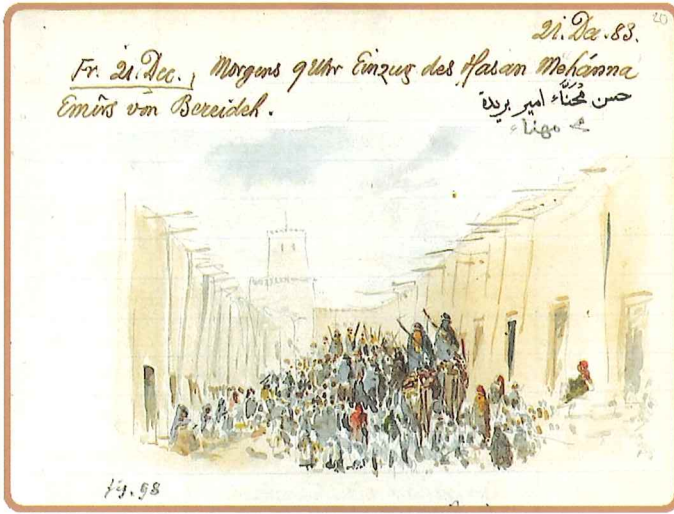 20
21. Dec. 83.
Fr. 21. Dec., Morgens 9 Uhr Einzug des Hasan Mehánna
Emîrs von Bereideh.
حسن مُحنَّاء امير بريدة
مهناء
fig. 98